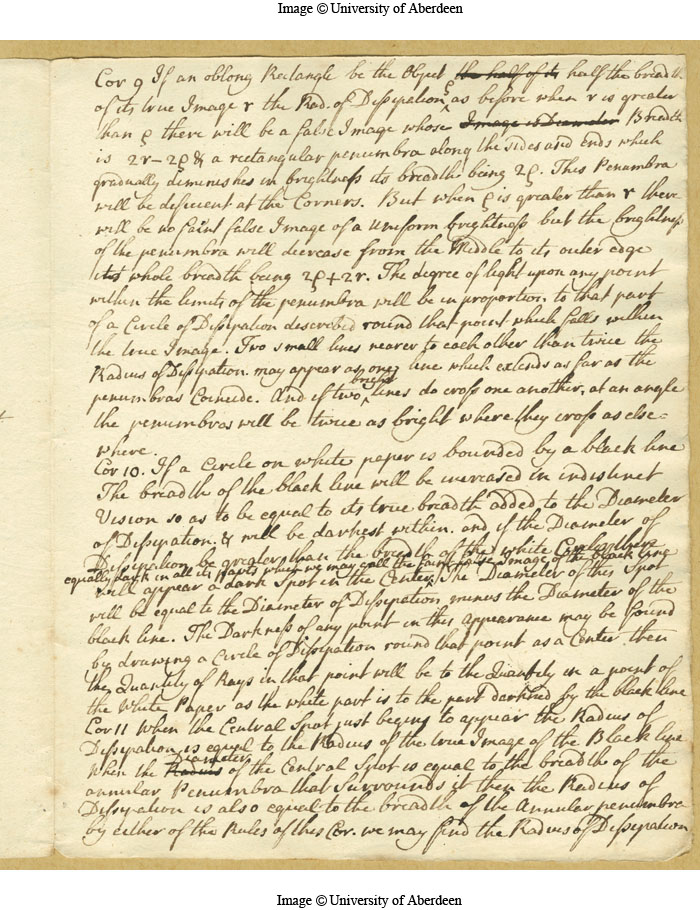 Image © University of Aberdeen
Cor 9 If an oblong Rectangle be the Object the half of its half the breadth
of its true Image r the Rad. of Dissipation ρ as before when r is greater
than ρ there will be a false Image whose Image is Diameter Breadth
is 2r – 2ρ & a rectangular penumbra along the sides and Ends which
gradually diminishes in brightness its breadth being 2ρ. This Penumbra
will be deficient at the Corners. But when ρ is greater than r there
will be no faint false Image of a uniform brightness but the brightness
of the penumbra will decrease from the Middle to its outer edge
its whole breadth being 2ρ + 2r. The degree of light upon any point
within the limits of the penumbra will be in proportion to that part
of a Circle of Dissipation described round that point which falls within
the true Image. Two small lines nearer to each other than twice the
Radius of Dissipation may appear as one line which extends as far as the
penumbras Coincide. And if two bright lines do cross one another, at an angle
the penumbras will be twice as bright where they cross as else=
where.
Cor 10. If a Circle on white paper is bounded by a black line
The breadth of the black line will be increased in indistinct
Vision so as to be equal to its true breadth added to the Diameter
of Dissipation. & will be darkest within. and if the Diameter of
Dissipation be greater than the breadth of the white Circle there
equally dark in all its parts which we may call the faint false Image of the black ring
will appear a dark Spot in the Center. The Diameter of this Spot
will be equal to the Diameter of Dissipation minus the Diameter of the
black line. The Darkness of any point in this appearance may be found
by drawing a Circle of Dissipation round that point as a Center then
the Quantity of Rays in that point will be to the Quantity in a point of
the White Paper as the white part is to the part darkned by the black line
Cor 11 When the Central Spot just begins to appear the Radius of
Dissipation is equal to the Radius of the true Image of the Black line
When the Radius Diameter of the Central Spot is equal to the breadth of the
annular Penumbra that Surrounds it then the Radius of
Dissipation is also equal to the breadth of the Annular penumbra
by either of the Rules of this Cor. we may find the Radius of Dissipation
Image © University of Aberdeen